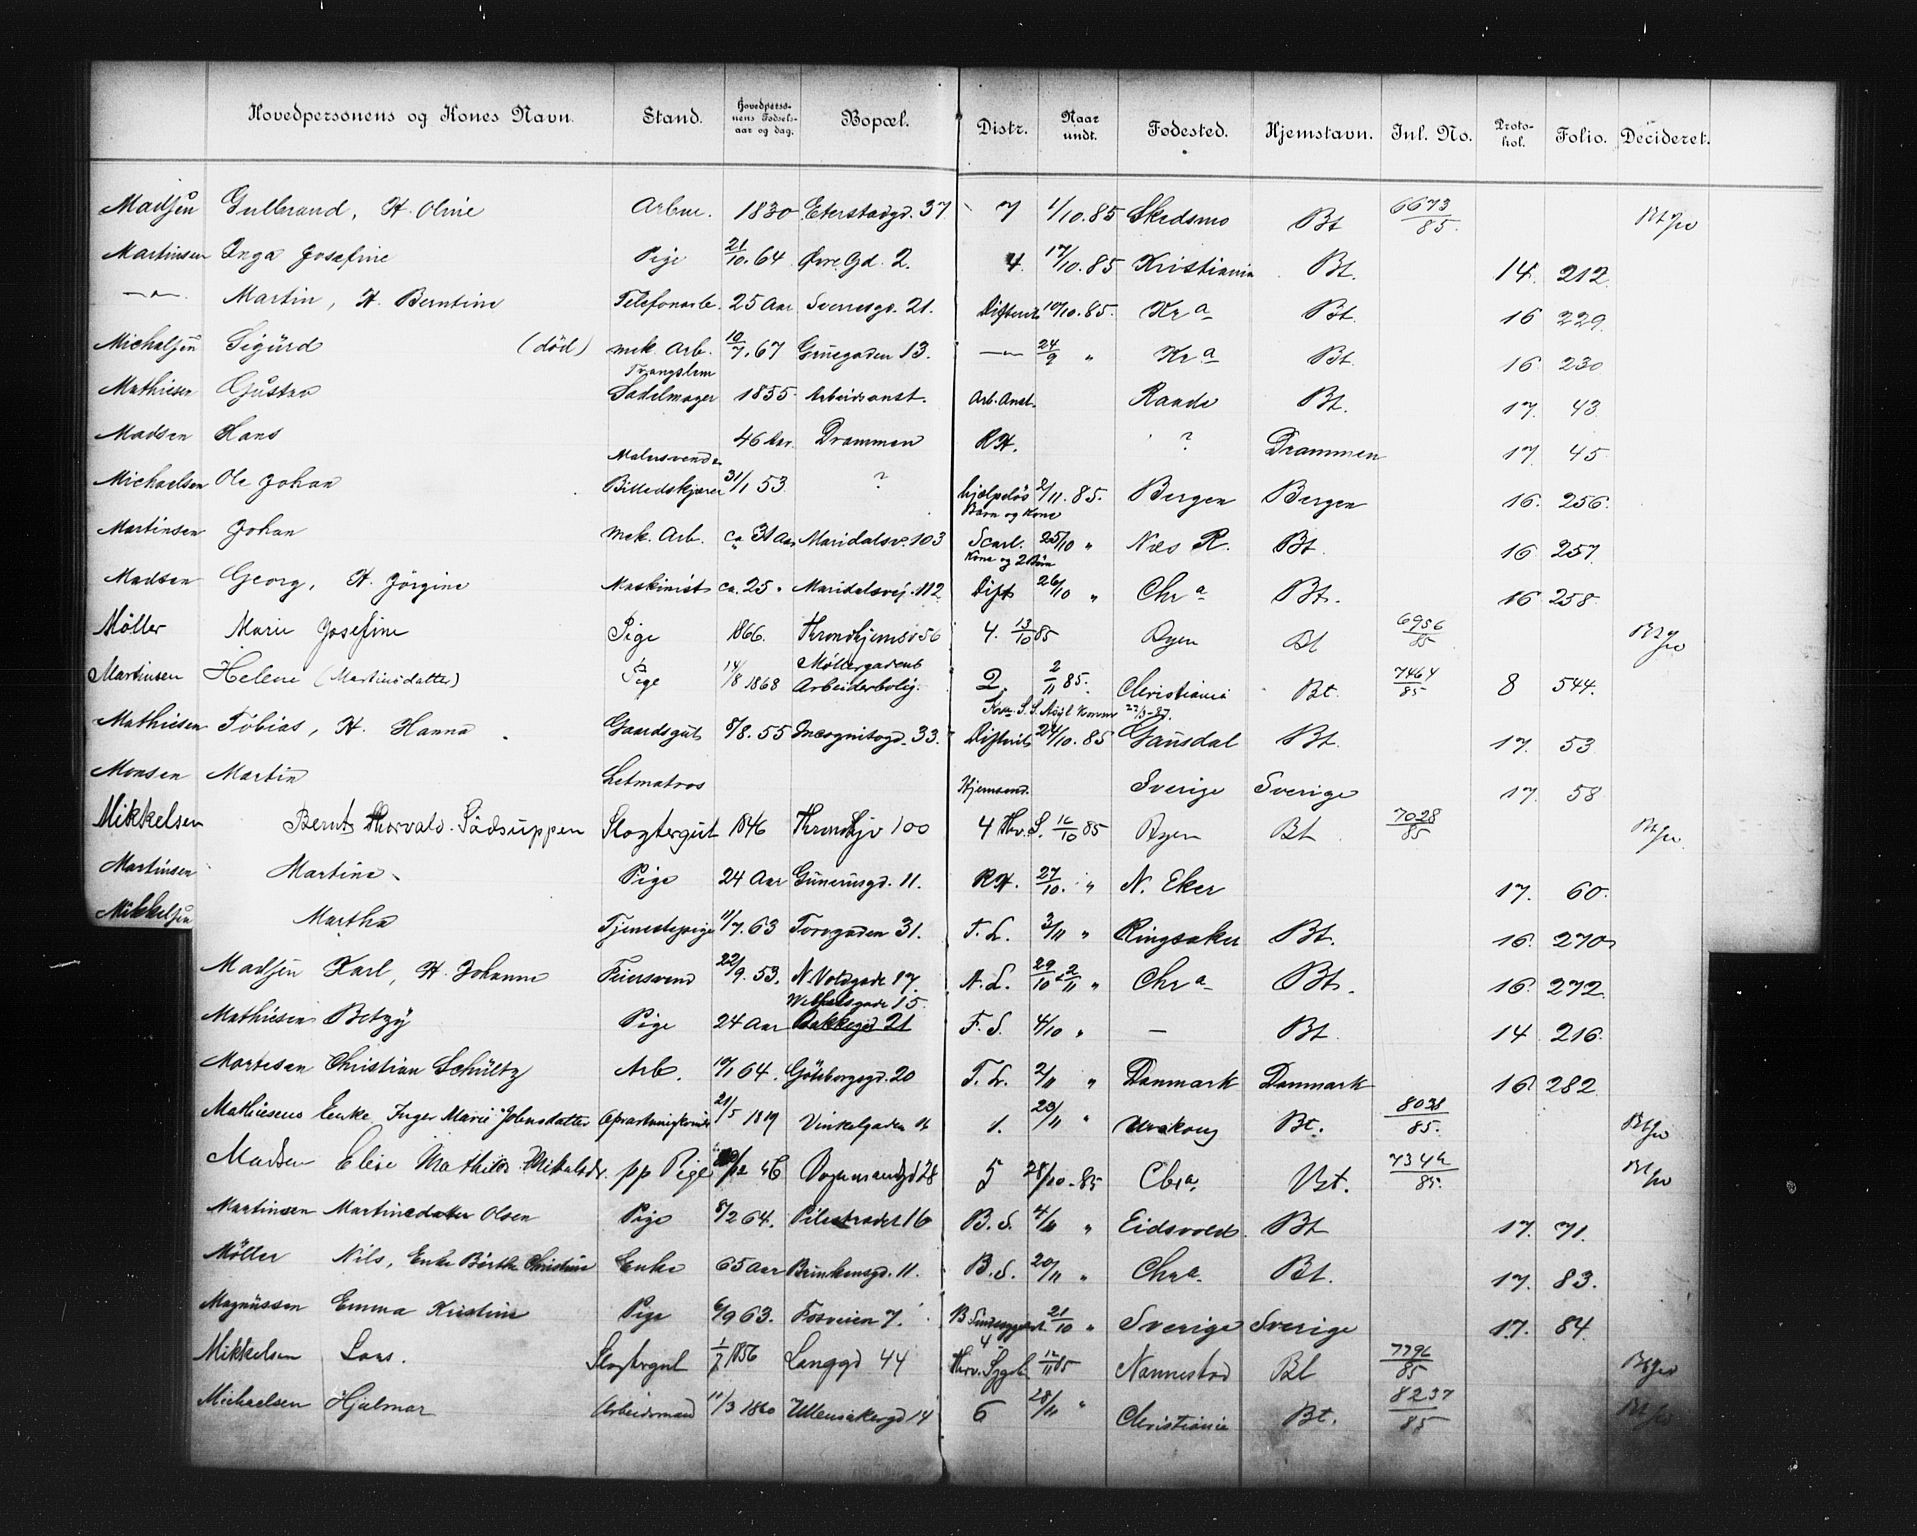 Hovedpersonens og Kones Navn. Stand. Hovedpersonens Fødselsaar og dag. Bopæl. Distr. Naar undt. Fødested. Hjemstavn. Jnl. No. Protokol. Folio. Decideret.
Madsen Gulbrand, H. Oline Arbm. 1830 Eterstadgd. 37 7 1/10.85 Skedsmo Bt 6673/85.
Martinsen Inga Josefine Pige 21/10.64 Øvre Gd. 2. 4. 17/10.85 Kristiania Bt. 14. 212.
—"—. Martin, H. Berntine Telefonarb. 25 Aar Sverresgd. 21. Difterit 10/10.85. Kra Bt. 16 229.
Michalsen Sigurd (død) mek. Arb. 10/7.67 Grüegaden 13. —"— 24/9 " Kra Bt. 16. 230
Mathiesen Gustav Tvangslem Sadelmager 1855 Arbeidsanst. Arb. Anst. Raade Bt. 17. 43
Madsen Hans 46 Aar. Drammen RH. ? Drammen 17. 45
Michaelsen Ole Johan Malersvend Billedskjærer 31/1 53. ? hjælpeløs Barn og Kone 2/11.85. Bergen Bergen 16. 256.
Martinsen Johan mek. Arb. ca. 31 Aar Maridalsv. 103 Scarl. Kone og 2 Børn 25/10 " Næs R. Bt. 16 257.
Madsen Georg, H. Jørgine Maskinist ca. 25 " Maridalsvej. 112. Dift 26/10 " Chra Bt. 16 258.
Møller Marie Josefine Pige 1866. Throndhjemsv 56 4. 13/10 85 Byen Bt 6956/85
Martinsen Helene (Martinsdatter) Pige 14/8 1868 Møllergadens Arbeiderbolig. 2. 2/11 85. Christiania Bt. 7464/85 8 544.
Mathiesen Tobias, H. Hanna Gaardsgut 8/8.55 Incognitogd. 33. Difterit 24/10.85 Gausdal Bt. 17. 53
Monsen Martin Letmatros Hjemsend. Sverige Sverige 17. 58
Mikkelsen Bernt Thorvald Sødsuppen Slagtergut 1846 Throndhjv 100 4 Thv. S. 16/10 85 Byen Bt 7028/85
Martinsen Martine Pige 24 Aar Gunerusgd. 11. RH. 27/10. " N. Eker 17. 60.
Mikkelsen Martha Tjenestepige 11/7.63 Torvgaden 31. T. L. 3/11 " Ringsaker Bt. 16. 270
Madsen Karl, H. Johanne Feiersvend 22/9.53. N. Voldgade 17. N. L. 29/10 & 2/11 " Chra Bt. 16. 272.
Mathiesen Betzy Pige 24 Aar 15. Bakkegd 21 F. S. 4/10 " — Bt. 14 216.
Mortesen Christian Schültz Arb. 10/1 64. Göteborgsgd. 20 T. L. 2/11 " Danmark Danmark 16 282.
Mathiesens Enke Inger Marie Johnsdatter Opvartningskone 21/5 1819 Vinkelgaden 16 1. 23/11 " Urskoug Bt. 8038/85.
Madsen Elise Mathilde pp Pige /12 46 28 5 28/10-85 Chra. Bt. 7342/85.
Martinsen Martinedatter Olsen Pige 8/2 64. Pilestrædet 16 B. S. 4/11 " Eidsvold Bt 17. 71.
Møller Nils, Enke Berthe Christine Enke 65 Aar Brinkensgd. 11. B. S. 20/11 " Chra. Bt. 17. 83.
Magnussen Emma Kristine Pige 6/9 63. Fosveien 7. B 21/10 " Sverige Sverige 17. 84.
Mikkelsen Lars. Slagtergut 1/7 1856 Langgd 44 4 Thv. Sygl. 12/11 85 Nannestad Bt 7796/85
Michaelsen Hjalmar Arbeidsmand 11/3 1860 Ullensakergd 14 6 28/11 " Christiania Bt. 8237/85